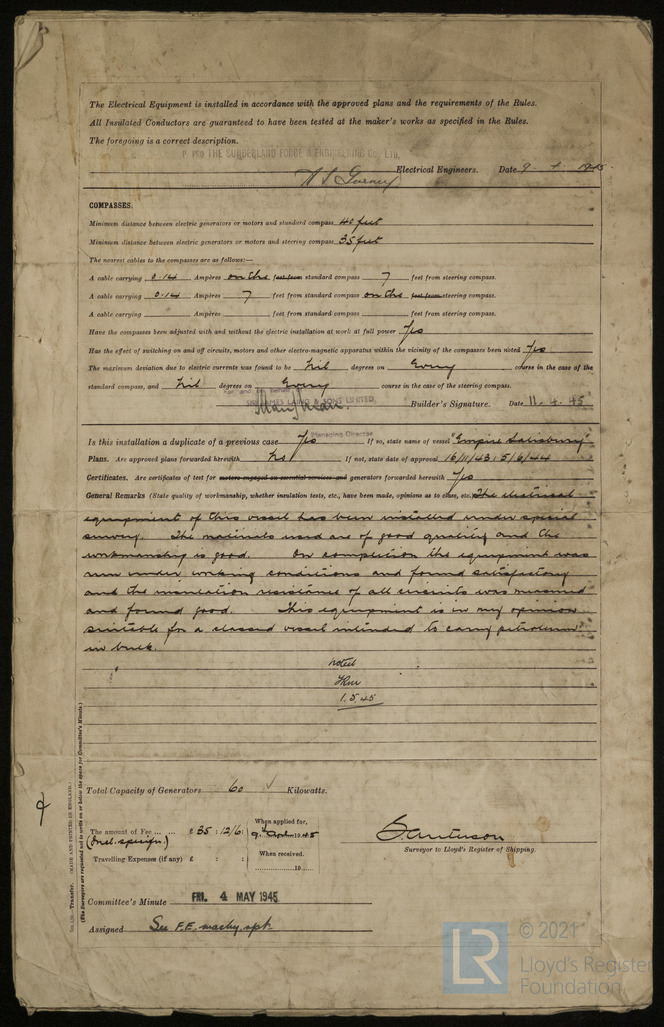 The Electrical Equipment is installed in accordance with the approved plans and the requirements of the Rules.
All Insulated Conductors are guaranteed to have been tested at the maker's works as specified in the Rules.
The foregoing is a correct description.
P. PRO THE SUNDERLAND FORGE & ENGINEERING CO., LTD,
Electrical Engineers. Date 9 - 4 - 1945.
COMPASSES.
Minimum distance between electric generators or motors and standard compass 40 feet
Minimum distance between electric generators or motors and steering compass 35 feet
The nearest cables to the compasses are as follows:—
A cable carrying 0.14 Ampères on the feet from standard compass 7 feet from steering compass.
A cable carrying 0.14 Ampères 7 feet from standard compass on the feet from steering compass.
A cable carrying Ampères feet from standard compass feet from steering compass.
Have the compasses been adjusted with and without the electric installation at work at full power Yes
Has the effect of switching on and off circuits, motors and other electro-magnetic apparatus within the vicinity of the compasses been noted Yes
The maximum deviation due to electric currents was found to be Nil degrees on Every course in the case of the
standard compass, and Nil degrees on Every course in the case of the steering compass.
For and on behalf of
SIR JAMES LAING & SONS LIMITED,
Builder's Signature. Date 11. 4. 45
Managing Director
Is this installation a duplicate of a previous case Yes If so, state name of vessel "Empire Salisbury"
Plans. Are approved plans forwarded herewith No If not, state date of approval 16/11/43 : 5/6/44
Certificates. Are certificates of test for motors engaged on essential services and generators forwarded herewith Yes
General Remarks (State quality of workmanship, whether insulation tests, etc., have been made, opinions as to class, etc.) The electrical
equipment of this vessel has been installed under special
survey. The materials used are of good quality and the
workmanship is good. On completion the equipment was
run under working conditions and found satisfactory
and the insulation resistance of all circuits was measured
and found good. This equipment is in my opinion
suitable for a classed vessel intended to carry petroleum
in bulk.
noted
1.5.45
Total Capacity of Generators 60 Kilowatts.
The amount of Fee ... ... £ 35 : 12/6 :
(Incl. specifn.)
When applied for,
1945
Travelling Expenses (if any) £ : :
When received.
19
Surveyor to Lloyd's Register of Shipping.
Committee's Minute FRI. 4 MAY 1945
Assigned See F.E. machy. rpt.
Transfer. (MADE AND PRINTED IN ENGLAND.)
(The Surveyors are requested not to write on or below the space for Committee's Minute.)
LR
© 2021
Lloyd's Register
Foundation